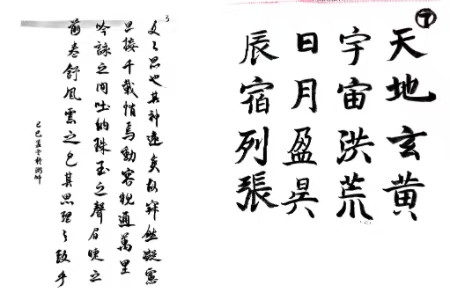 3
文之思也其神遠矣故寂然凝慮
思接千載悄焉動容視通萬里
吟詠之間吐納珠玉之聲眉睫之
前卷舒風雲之色其思理之致乎
己巳
7
天地玄黄
宇宙洪荒
日月盈昃
辰宿列張